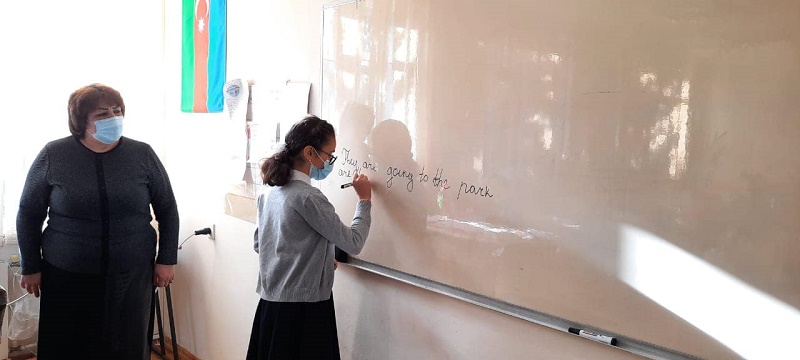 They are going to the park
are